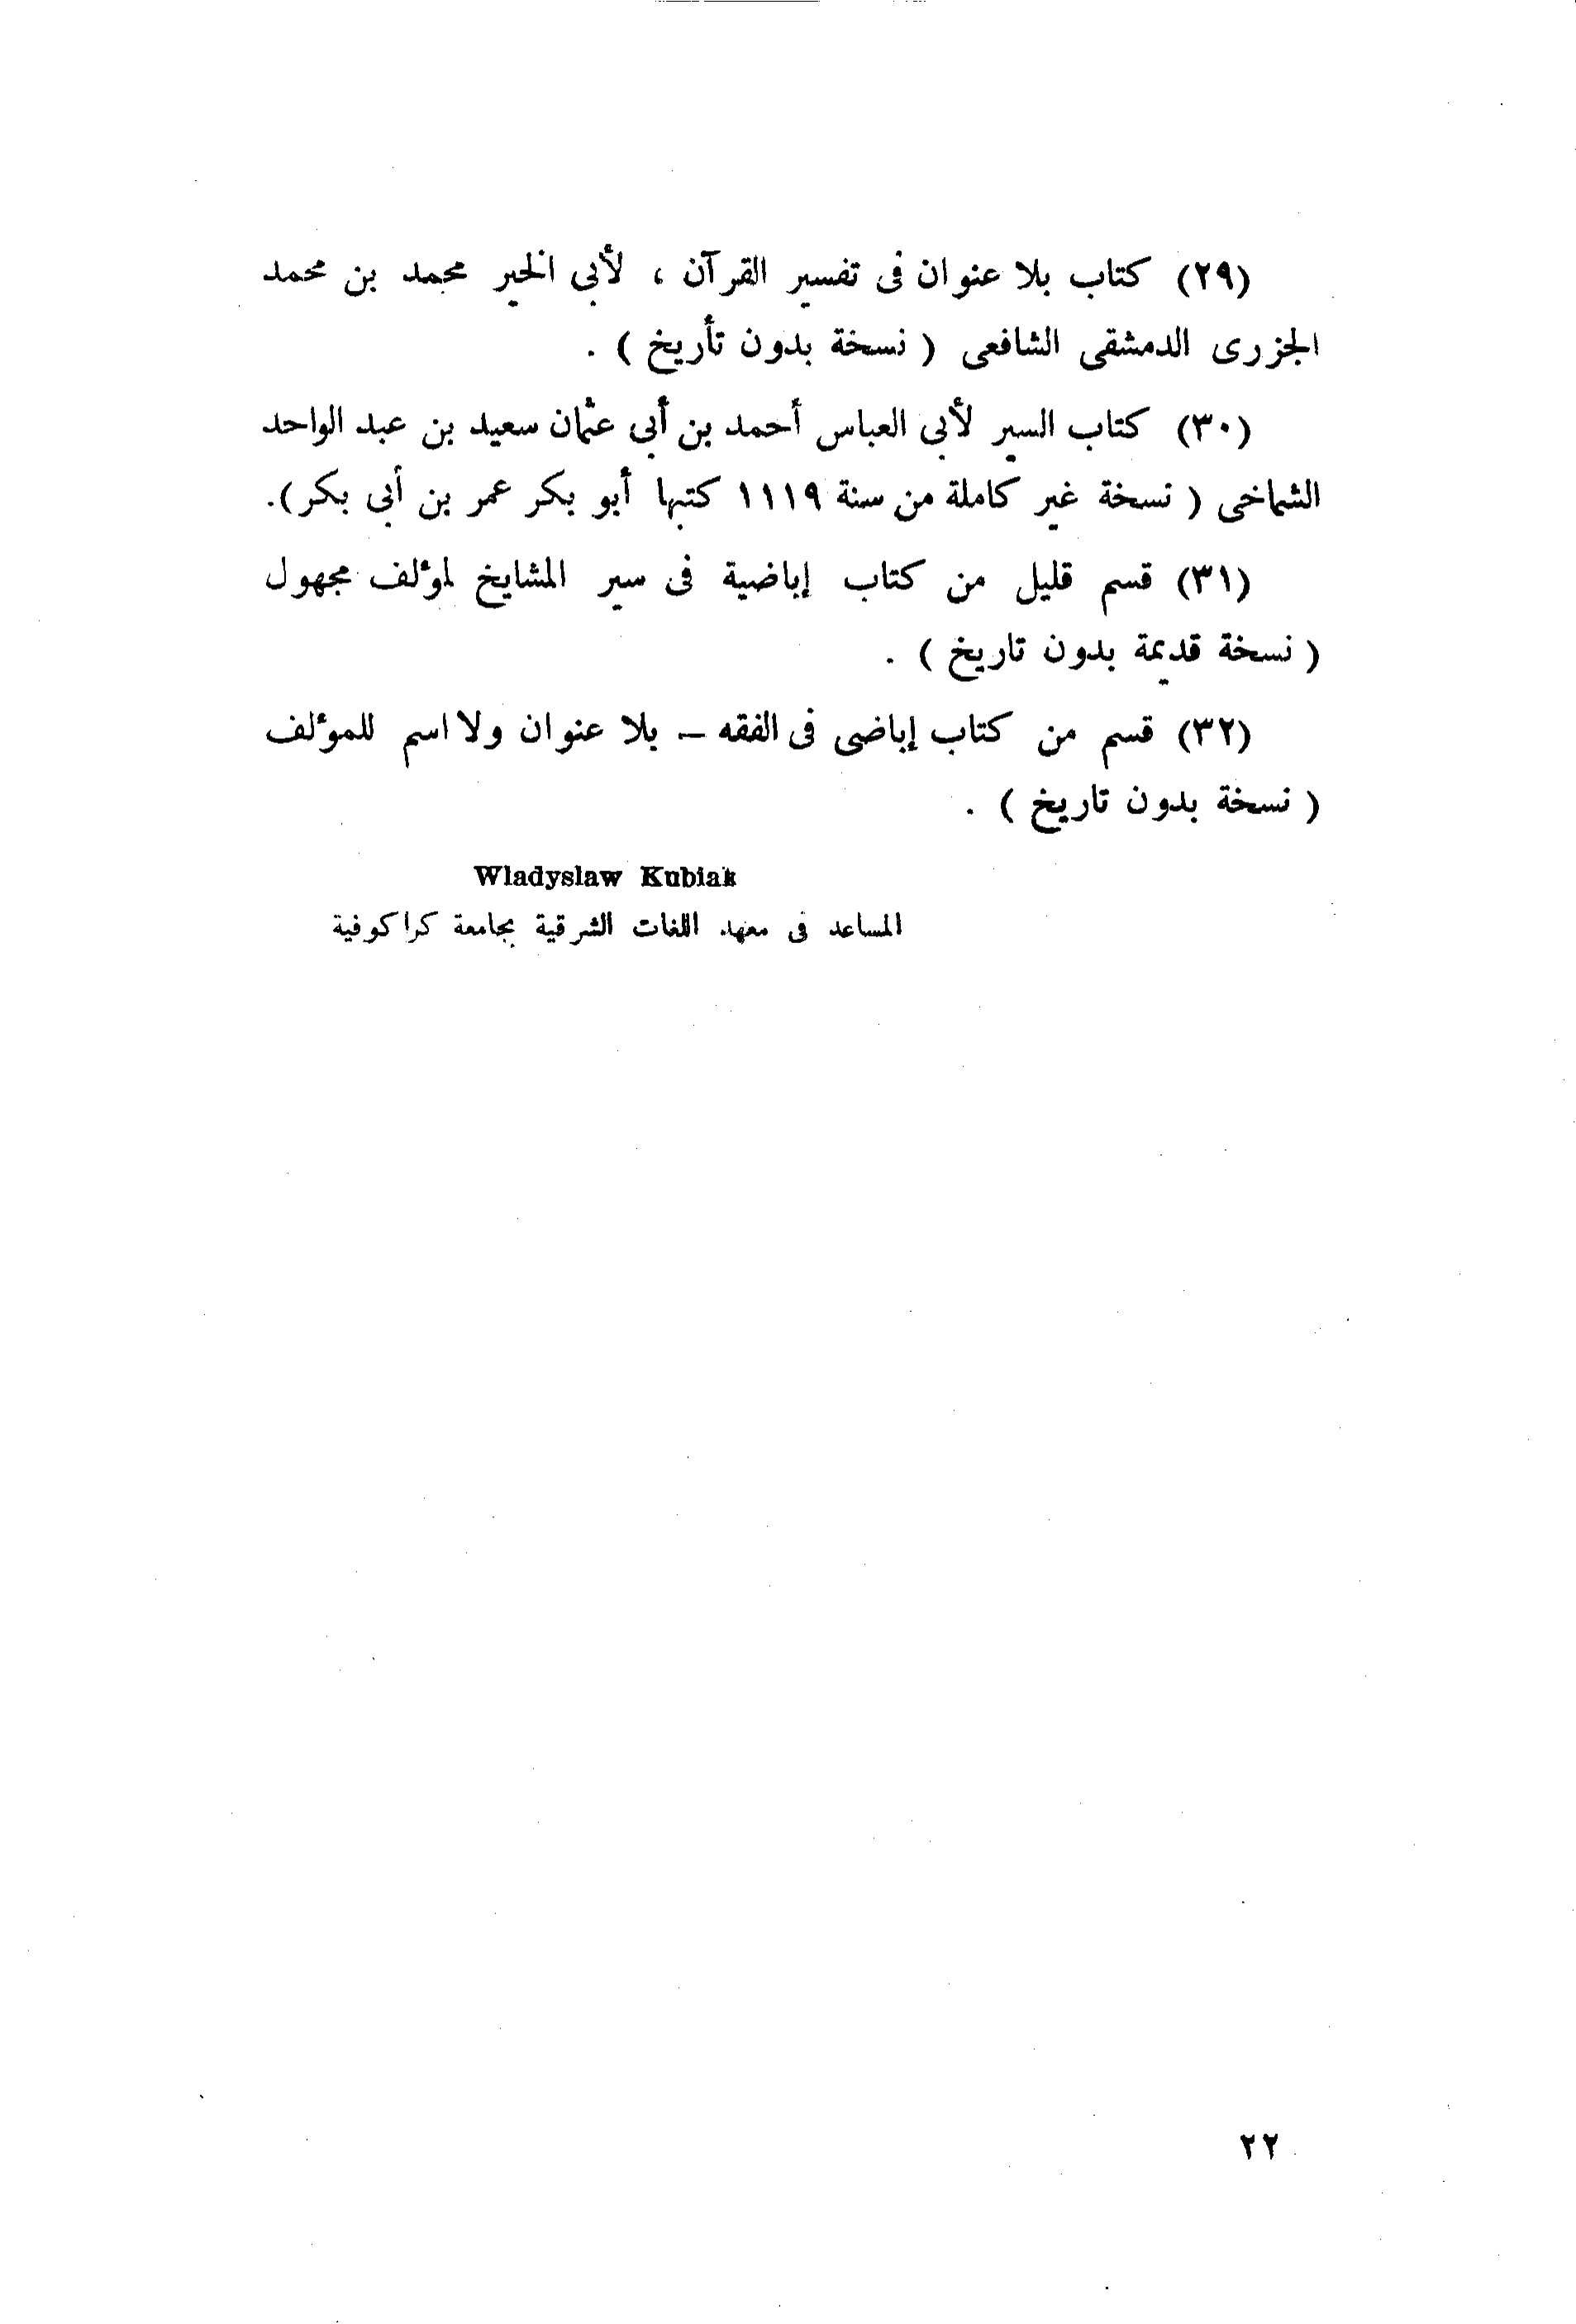 (٢٩) كتاب بلا عنوان فى تفسير القرآن ، لأبى الخير محمد بن محمد
الجزرى الدمشقى الشافعى ( نسخة بدون تأريخ ) .
(٣٠) كتاب السير لأبى العباس أحمد بن أبى عثمان سعيد بن عبد الواحد
الشماخى ( نسخة غير كاملة من سنة ١١١٩ كتبها أبو بكر عمر بن أبى بكر).
(٣١) قسم قليل من كتاب إباضية فى سير المشايخ لمؤلف مجهول
( نسخة قديمة بدون تاريخ ) .
(٣٢) قسم من كتاب إباضى فى الفقه – بلا عنوان ولا اسم للمؤلف
( نسخة بدون تاريخ ) .
Wladyslaw Kubiak
المساعد فى معهد اللغات الشرقية بجامعة كراكوفية
٢٢